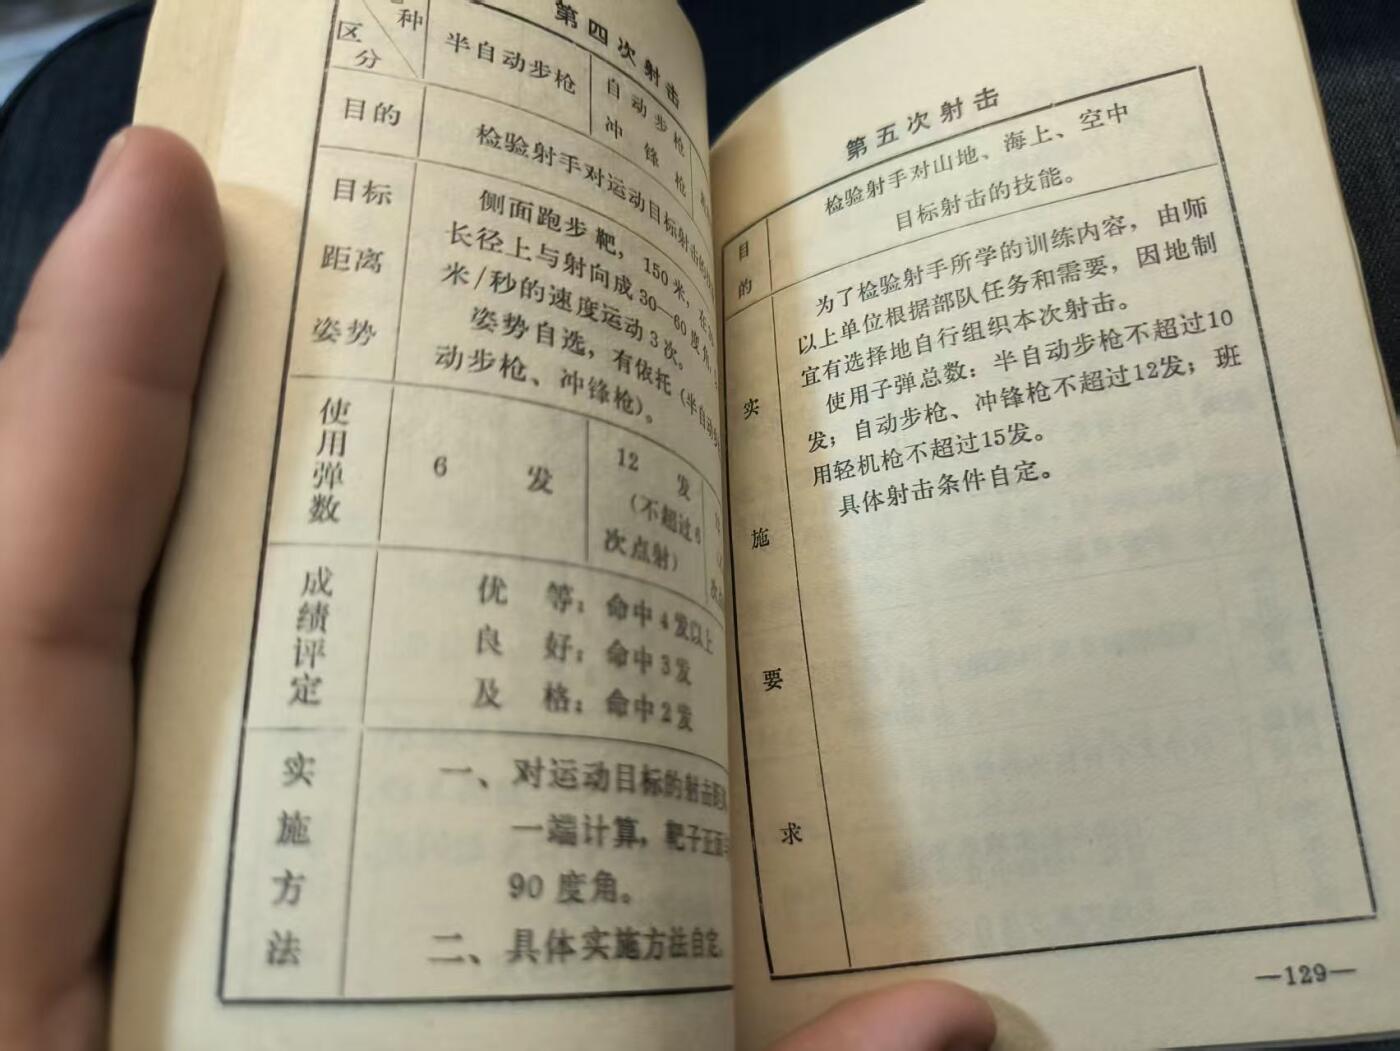 第四次射击
种
区分
半自动步枪
自动步枪
冲锋枪
目的
检验射手对运动目标射击的
目标
距离
姿势
侧面跑步靶，150米，在
长径上与射向成30—60度角，
米/秒的速度运动3次。
姿势自选，有依托（半自动
动步枪、冲锋枪）。
使用弹数
6 发
12 发
（不超过6
次点射）
成绩评定
优 等：命中4发以上
良 好：命中3发
及 格：命中2发
实施方法
一、对运动目标的射击
一端计算，靶子正面
90度角。
二、具体实施方法自定。
第五次射击
目的
检验射手对山地、海上、空中
目标射击的技能。
实施要求
为了检验射手所学的训练内容，由师
以上单位根据部队任务和需要，因地制
宜有选择地自行组织本次射击。
使用子弹总数：半自动步枪不超过10
发；自动步枪、冲锋枪不超过12发；班
用轻机枪不超过15发。
具体射击条件自定。
—129—